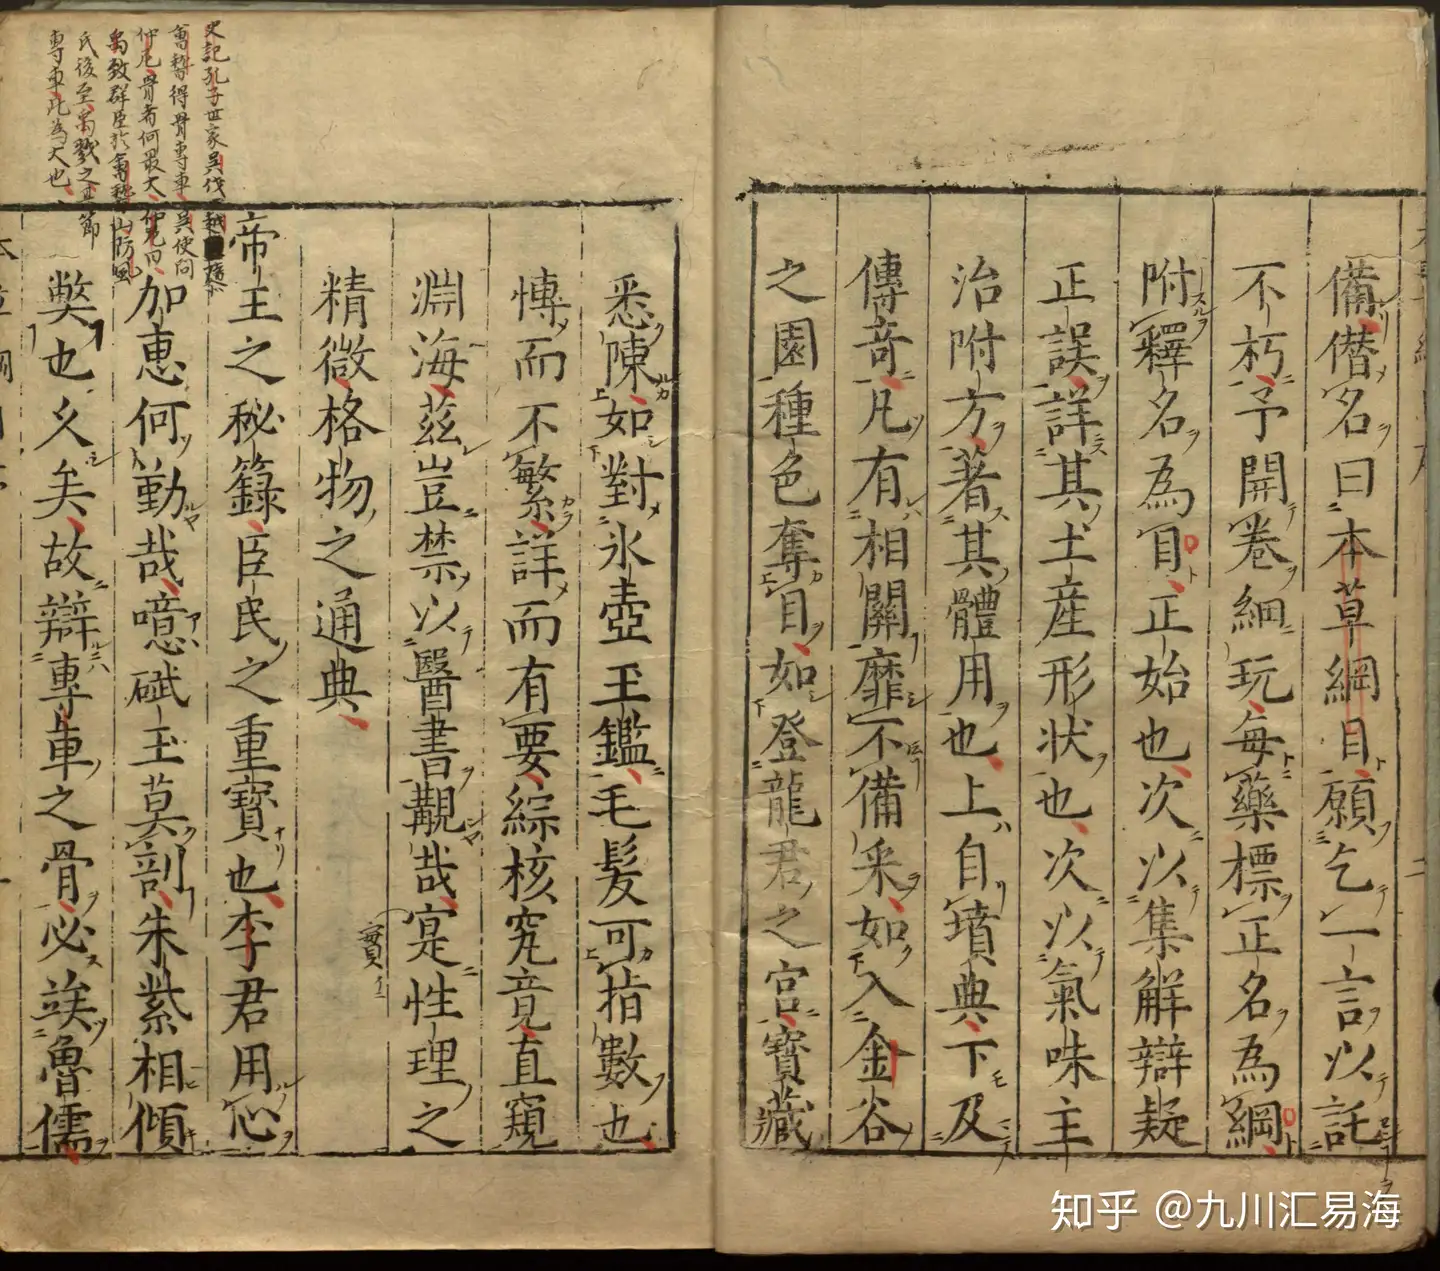 備僣名曰本草綱目願乞一言以託
不朽予開卷細玩每藥標正名為綱
附釋名為目正始也次以集解辯疑
正誤詳其土産形状也次以氣味主
治附方著其體用也上自墳典下及
傳竒凡有相關靡不備采如入金谷
之園種色奪目如登龍君之宮寶藏
悉陳如對氷壺玉鑑毛髮可指數也
愽而不繁詳而有要綜核究竟直窺
淵海茲豈禁以醫書覯哉寔性理之
實
精微格物之通典
帝王之秘籙臣民之重寶也李君用心
加惠何勤哉噫碔玉莫剖朱紫相傾
獘也久矣故辯專車之骨必竢魯儒
史記孔子世家吳伐越
會稽得骨專車吳使問
仲尼骨者何最大仲尼曰
禹致群臣於會稽山防風
氏後至禹戮之其節
專車此為大也
知乎 @九川汇易海